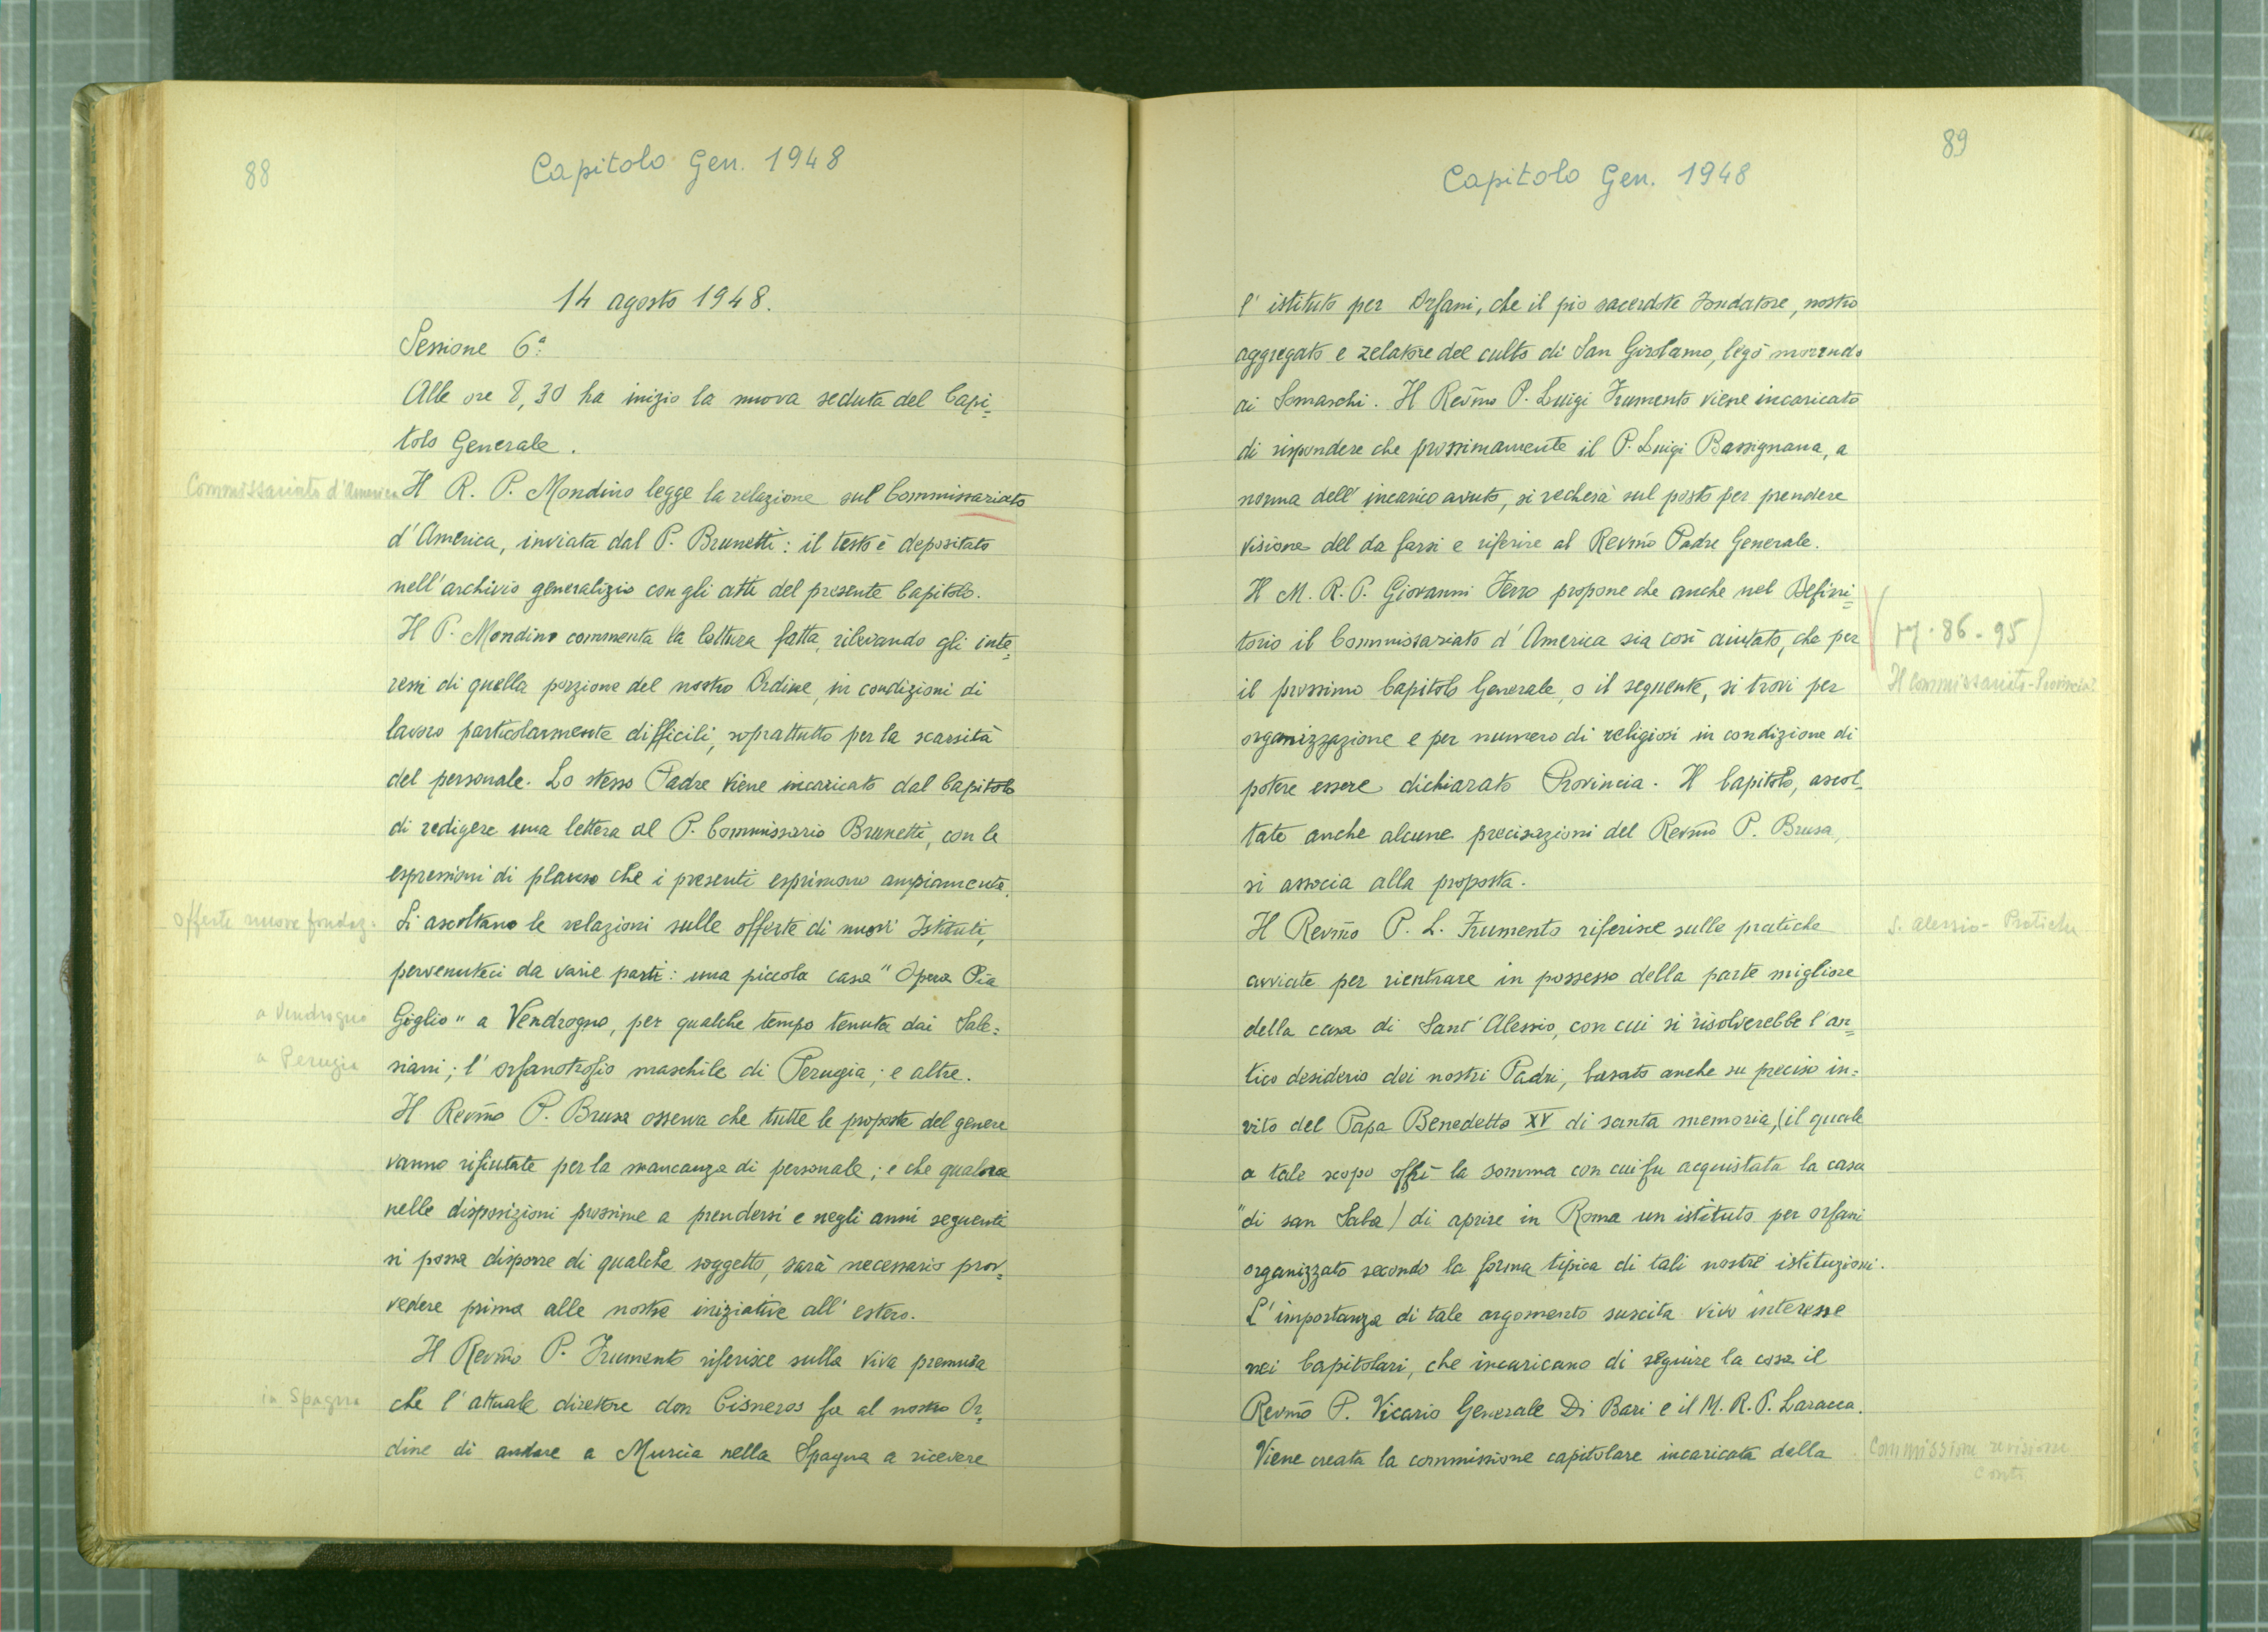 88
Capitolo Gen. 1948
14 agosto 1948.
Sessione 6ª:
Alle ore 8,30 ha inizio la nuova seduta del Capi=
tolo Generale.
Commissariato d'America
Il R. P. Mondino legge la relazione sul Commissariato
d'America, inviata dal P. Brunetti: il testo è depositato
nell'archivio generalizio con gli atti del presente Capitolo.
Il P. Mondino commenta la lettura fatta, rilevando gli inte=
ressi di quella porzione del nostro Ordine, in condizioni di
lavoro particolarmente difficili, soprattutto per la scarsità
del personale. Lo stesso Padre viene incaricato dal Capitolo
di redigere una lettera al P. Commissario Brunetti, con le
espressioni di plauso che i presenti esprimono ampiamente.
offerte nuove fondaz.
Si ascoltano le relazioni sulle offerte di nuovi Istituti,
pervenuteci da varie parti: una piccola casa "Opera Pia
a Vendrogno
Giglio" a Vendrogno, per qualche tempo tenuta dai Sale=
a Perugia
siani; l'orfanotrofio maschile di Perugia; e altre.
Il Revm̃o P. Brusa osserva che tutte le proposte del genere
vanno rifiutate per la mancanza di personale; e che qualora
nelle disposizioni prossime a prendersi e negli anni seguenti
si possa disporre di qualche soggetto, sarà necessario prov=
vedere prima alle nostre iniziative all'estero.
Il Revm̃o P. Frumento riferisce sulla viva premura
in Spagna
che l'attuale direttore don Cisneros fa al nostro Or=
dine di andare a Murcia nella Spagna a ricevere
89
Capitolo Gen. 1948
l'istituto per Orfani, che il pio sacerdote Fondatore, nostro
aggregato e zelatore del culto di San Girolamo, legò morendo
ai Somaschi. Il Revm̃o P. Luigi Frumento viene incaricato
di rispondere che prossimamente il P. Luigi Bassignana, a
norma dell'incarico avuto, si recherà sul posto per prendere
visione del da farsi e riferire al Revm̃o Padre Generale.
Il M. R. P. Giovanni Ferro propone che anche nel Defini=
torio il Commissariato d'America sia così aiutato, che per
86-95)
il prossimo Capitolo Generale, o il seguente, si trovi per
Il Commissariato-Provincia?
organizzazione e per numero di religiosi in condizione di
potere essere dichiarato Provincia. Il Capitolo, ascol=
tate anche alcune precisazioni del Revm̃o P. Brusa,
si associa alla proposta.
Il Revm̃o P. L. Frumento riferisce sulle pratiche
S. Alessio - Pratiche
avviate per rientrare in possesso della parte migliore
della casa di Sant'Alessio, con cui si risolverebbe l'an=
tico desiderio dei nostri Padri, basato anche su preciso in=
vito del Papa Benedetto XV di santa memoria, (il quale
a tale scopo offrì la somma con cui fu acquistata la casa
"di san Saba) di aprire in Roma un istituto per orfani
organizzato secondo la forma tipica di tali nostre istituzioni.
L'importanza di tale argomento suscita vivo interesse
nei Capitolari, che incaricano di seguire la cosa il
Revm̃o P. Vicario Generale Di Bari e il M. R. P. Laracca.
Viene creata la commissione capitolare incaricata della
Commissione revisione
conti